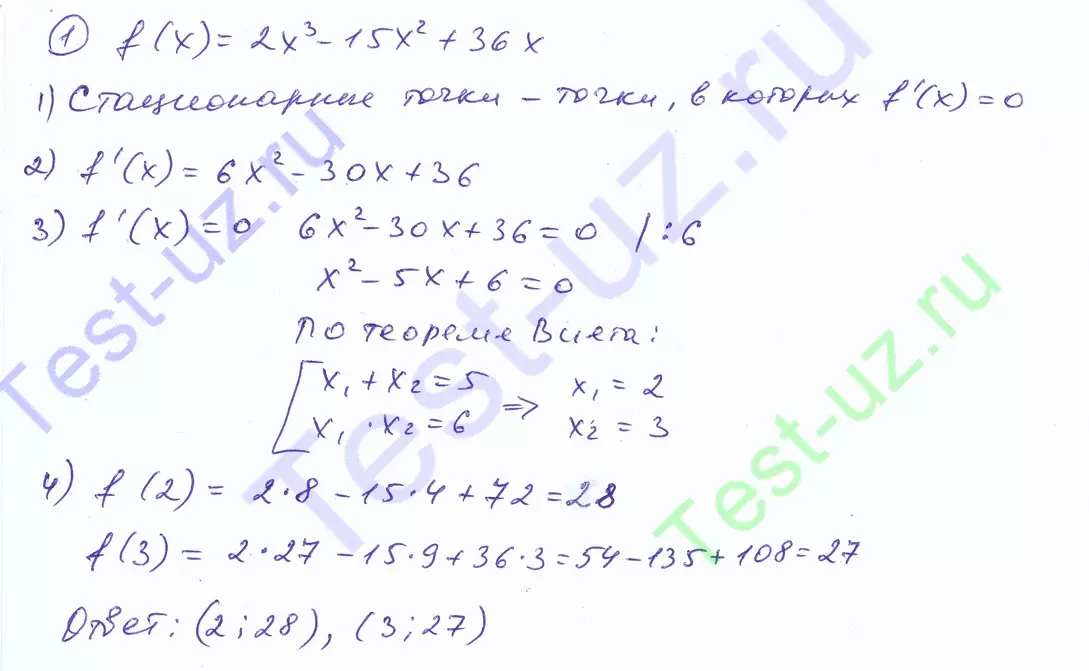 ① f(x) = 2x³ - 15x² + 36x
1) Стационарные точки – точки, в которых f'(x) = 0
2) f'(x) = 6x² - 30x + 36
3) f'(x) = 0 6x² - 30x + 36 = 0 / : 6
x² - 5x + 6 = 0
по теореме Виета:
[ x₁ + x₂ = 5 x₁ = 2
x₁ · x₂ = 6 => x₂ = 3
4) f(2) = 2·8 - 15·4 + 72 = 28
f(3) = 2·27 - 15·9 + 36·3 = 54 - 135 + 108 = 27
Ответ: (2; 28), (3; 27)
Test-uz.ru
Test-uz.ru
Test-uz.ru